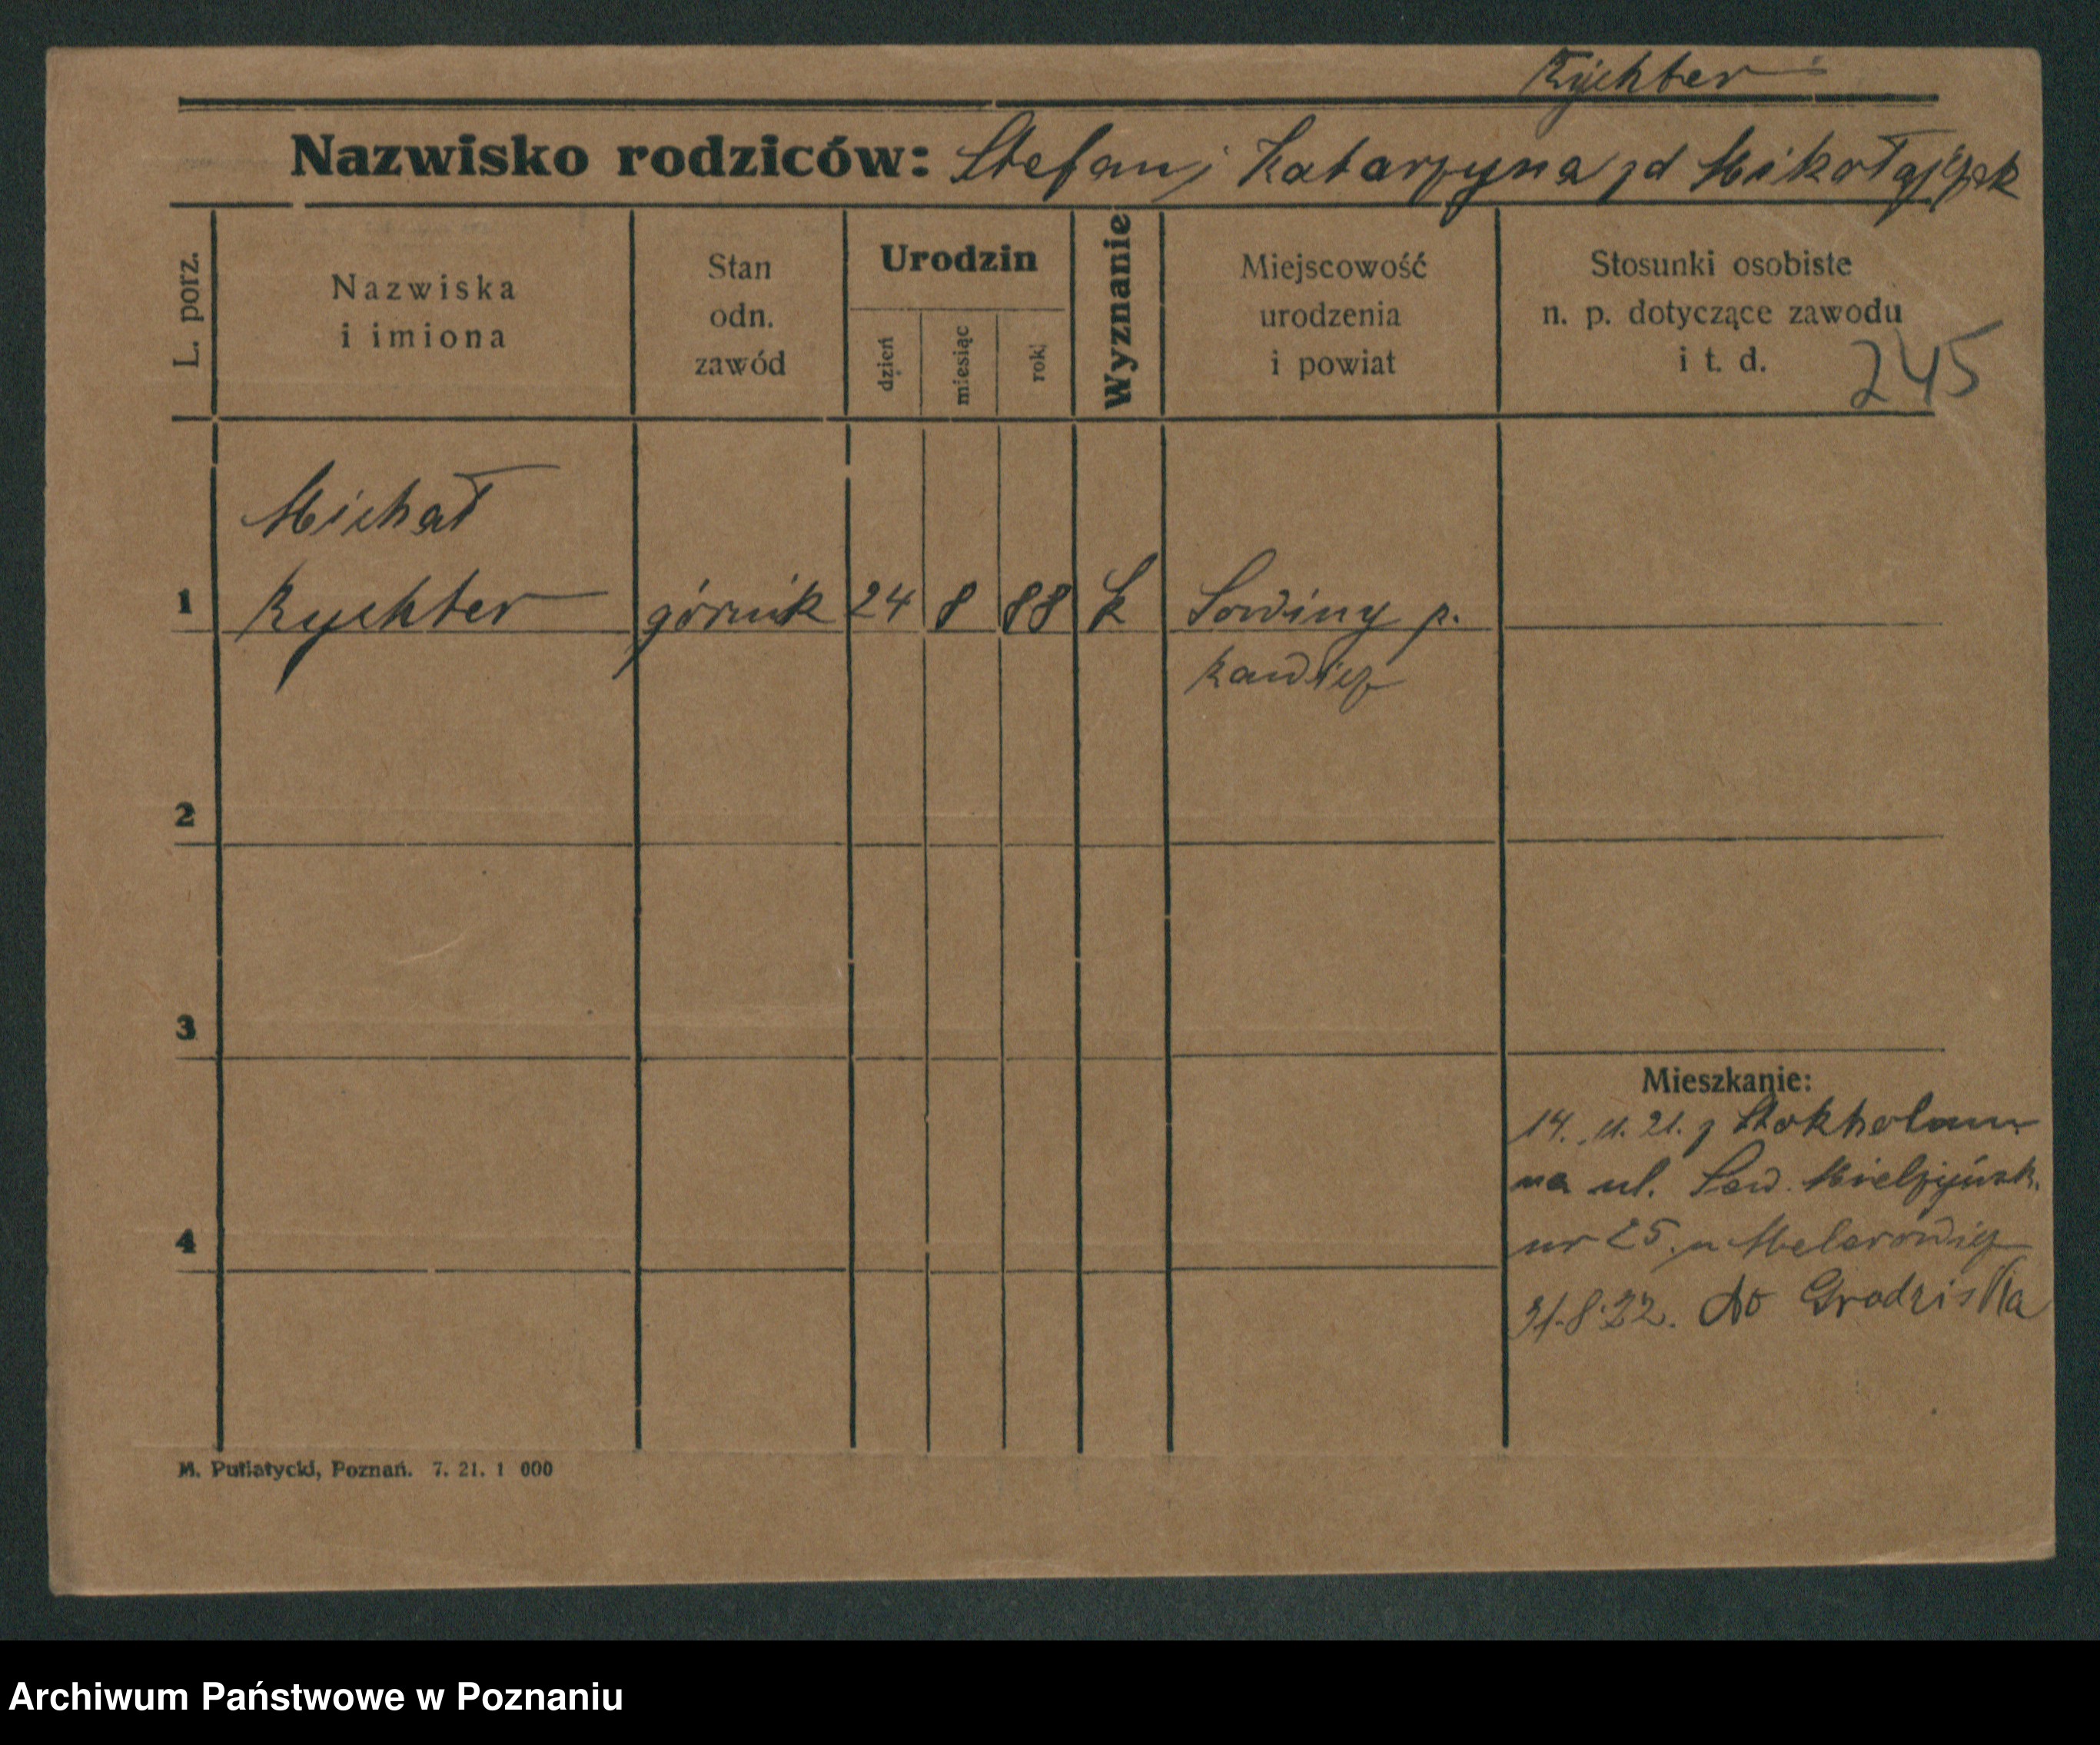 Rychter
Nazwisko rodziców: Stefan i Katarzyna zd Mikołajczak
L. porz.
Nazwiska
i imiona
Stan
odn.
zawód
Urodzin
dzień
miesiąc
rok
Wyznanie
Miejscowość
urodzenia
i powiat
Stosunki osobiste
n. p. dotyczące zawodu
i t. d.
245
Michał
1 Rychter górnik 24 8 88 k Sowiny p.
Rawicz
2
3
4
Mieszkanie:
14. 11. 21. z Stokholmu
na ul. Sew. Mielżyńsk.
nr 25. u
31.8.22. do Grodziska
M. Putiatycki, Poznań. 7. 21. 1 000
Archiwum Państwowe w Poznaniu